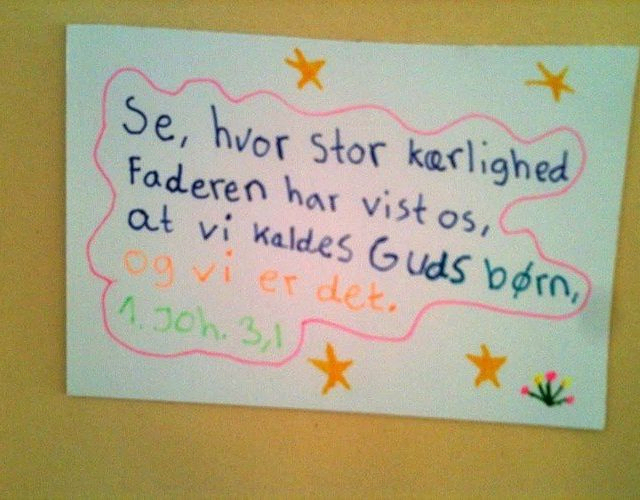 Se, hvor stor kærlighed
Faderen har vist os,
at vi kaldes Guds børn,
og vi er det.
1. Joh. 3,1